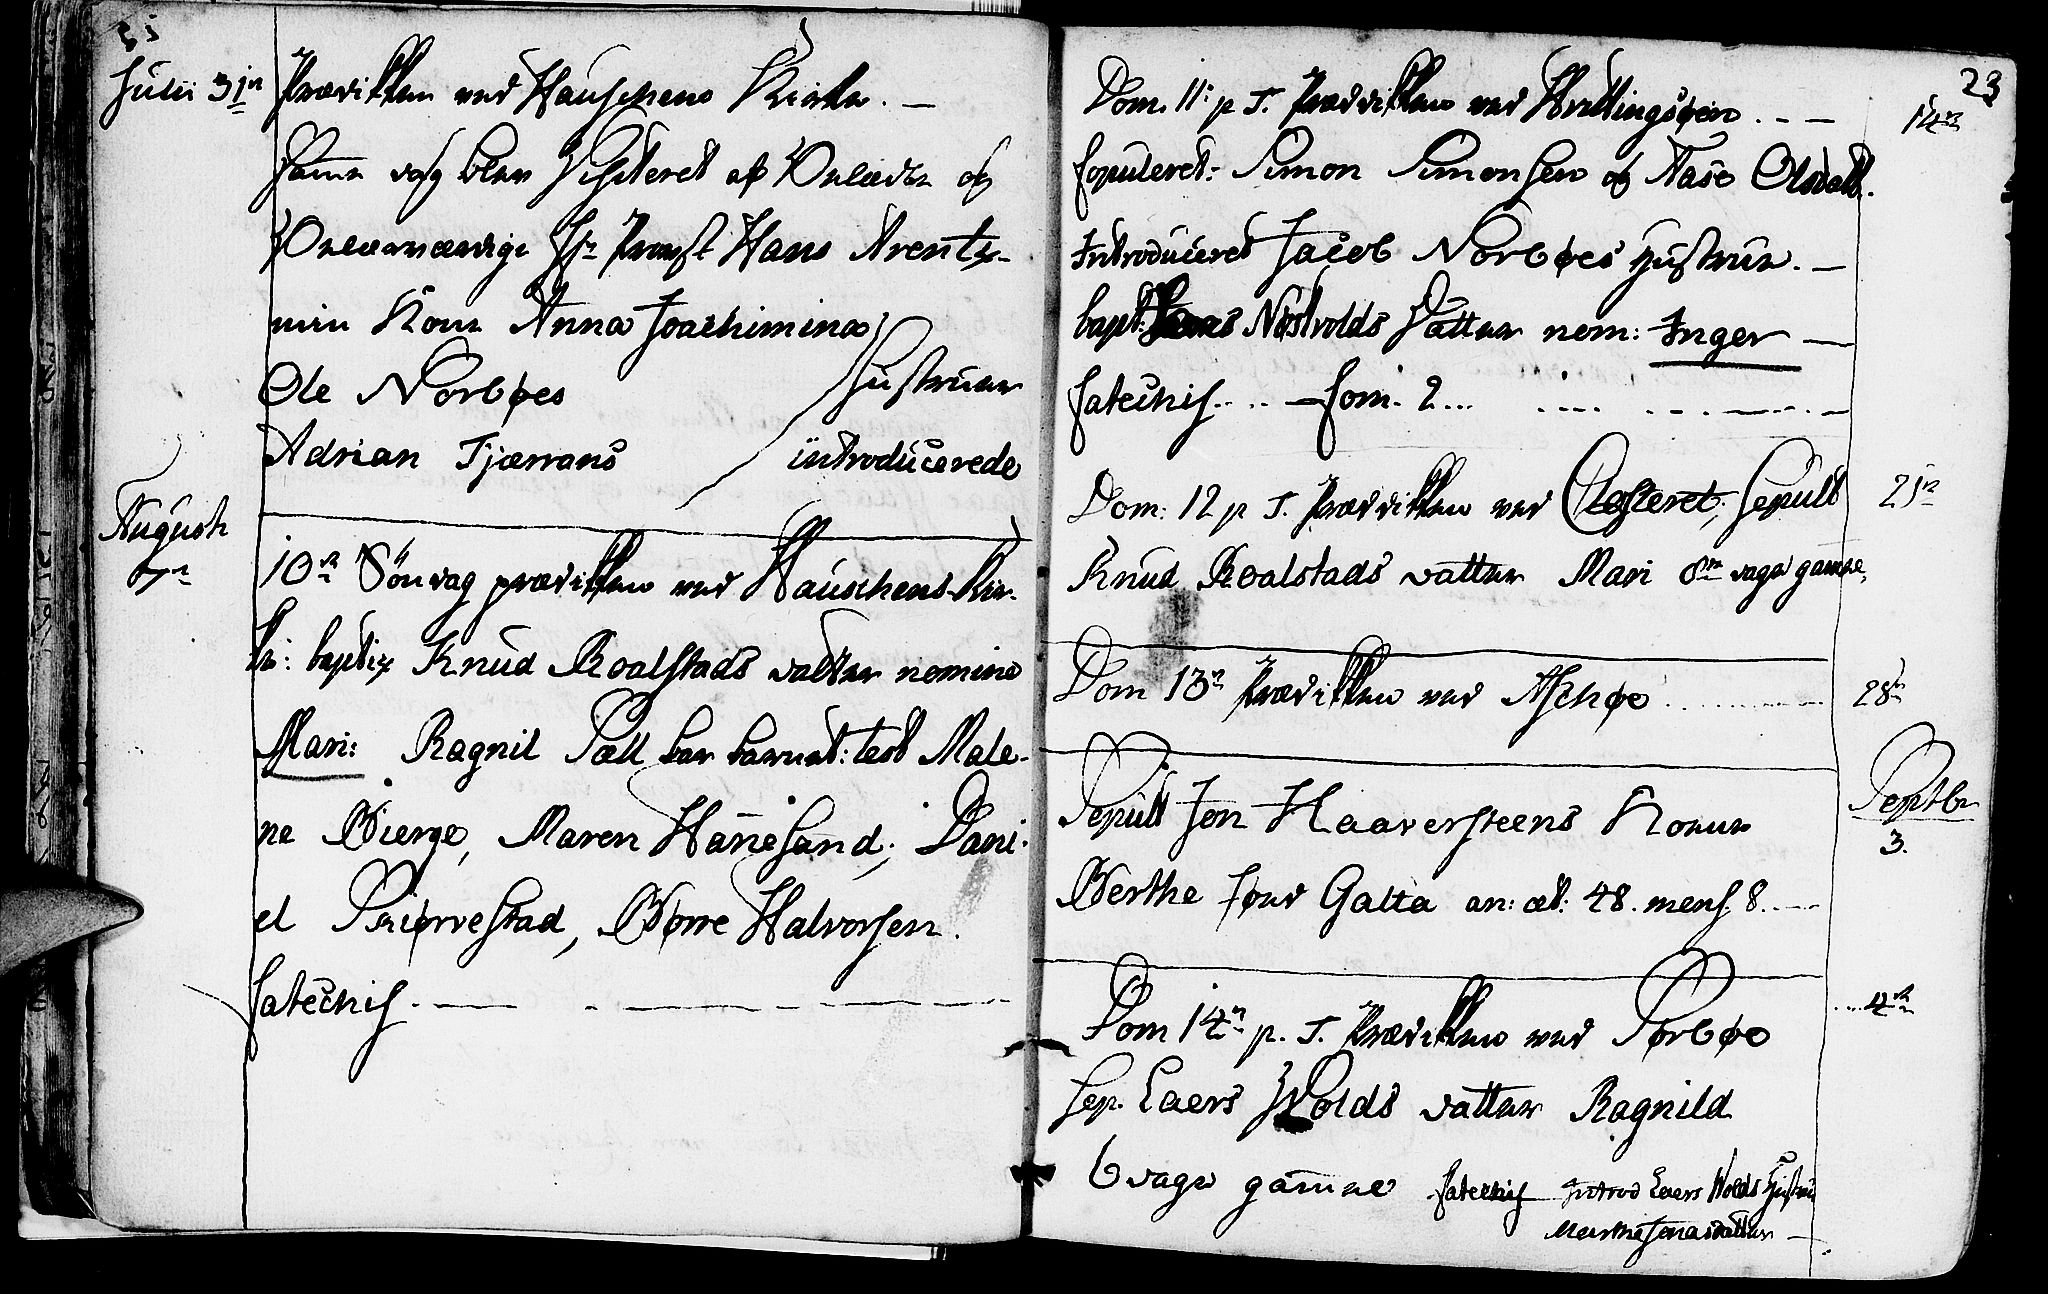 Julii 31te Prædiken ved Hauschens Kirke. —
Samme dag blev Visiteret af Velædle og
Velærværdige Hr. Provst Hans Arentz.
min Kone Anna Joachimina
Ole Norbøes Hustruer
Adrian Tjærrans introducerede
August
7de 10de Søndag prædiken ved Hauschens Kir-
ke: baptiz Knud Roalstads datter nomine
Mari: Ragnil Pæll bar barnet: test Male-
ne Bierge, Maren Hanesand, Dani-
el Priørvestad, Børre Halvorsen.
Catechis. —
23
Dom. 11: p T. Prædiken ved Hvittingsøen . . — 14de
Copuleret: Simon Simonsen og Aase Olsdatt.
Introduceret Jacob Norbøes Hustrue. —
bapt: Nøstvolds Datter nom: Inger —
Catechis. . . . — Com. 2 . . .
Dom: 12 p T. Prædiken ved Closteret, Sepult 21de
Knud Roalstads datter Mari 8te dage gamel,
Dom 13de Prædiken ved Aschøe . . . . . 28de
Septbr
3.
Sepult Jon Haaversteens Kone
Berthe Jons Galta an: æt: 48. mens. 8. —
Dom 14de p. T. Prædiken ved Sørbøe . . . 4de
Sep. Laers Wolds datter Ragnild
6 dage gamel Catechis Introd Laers Wolds Hustru
Marthe Jonasdatter —